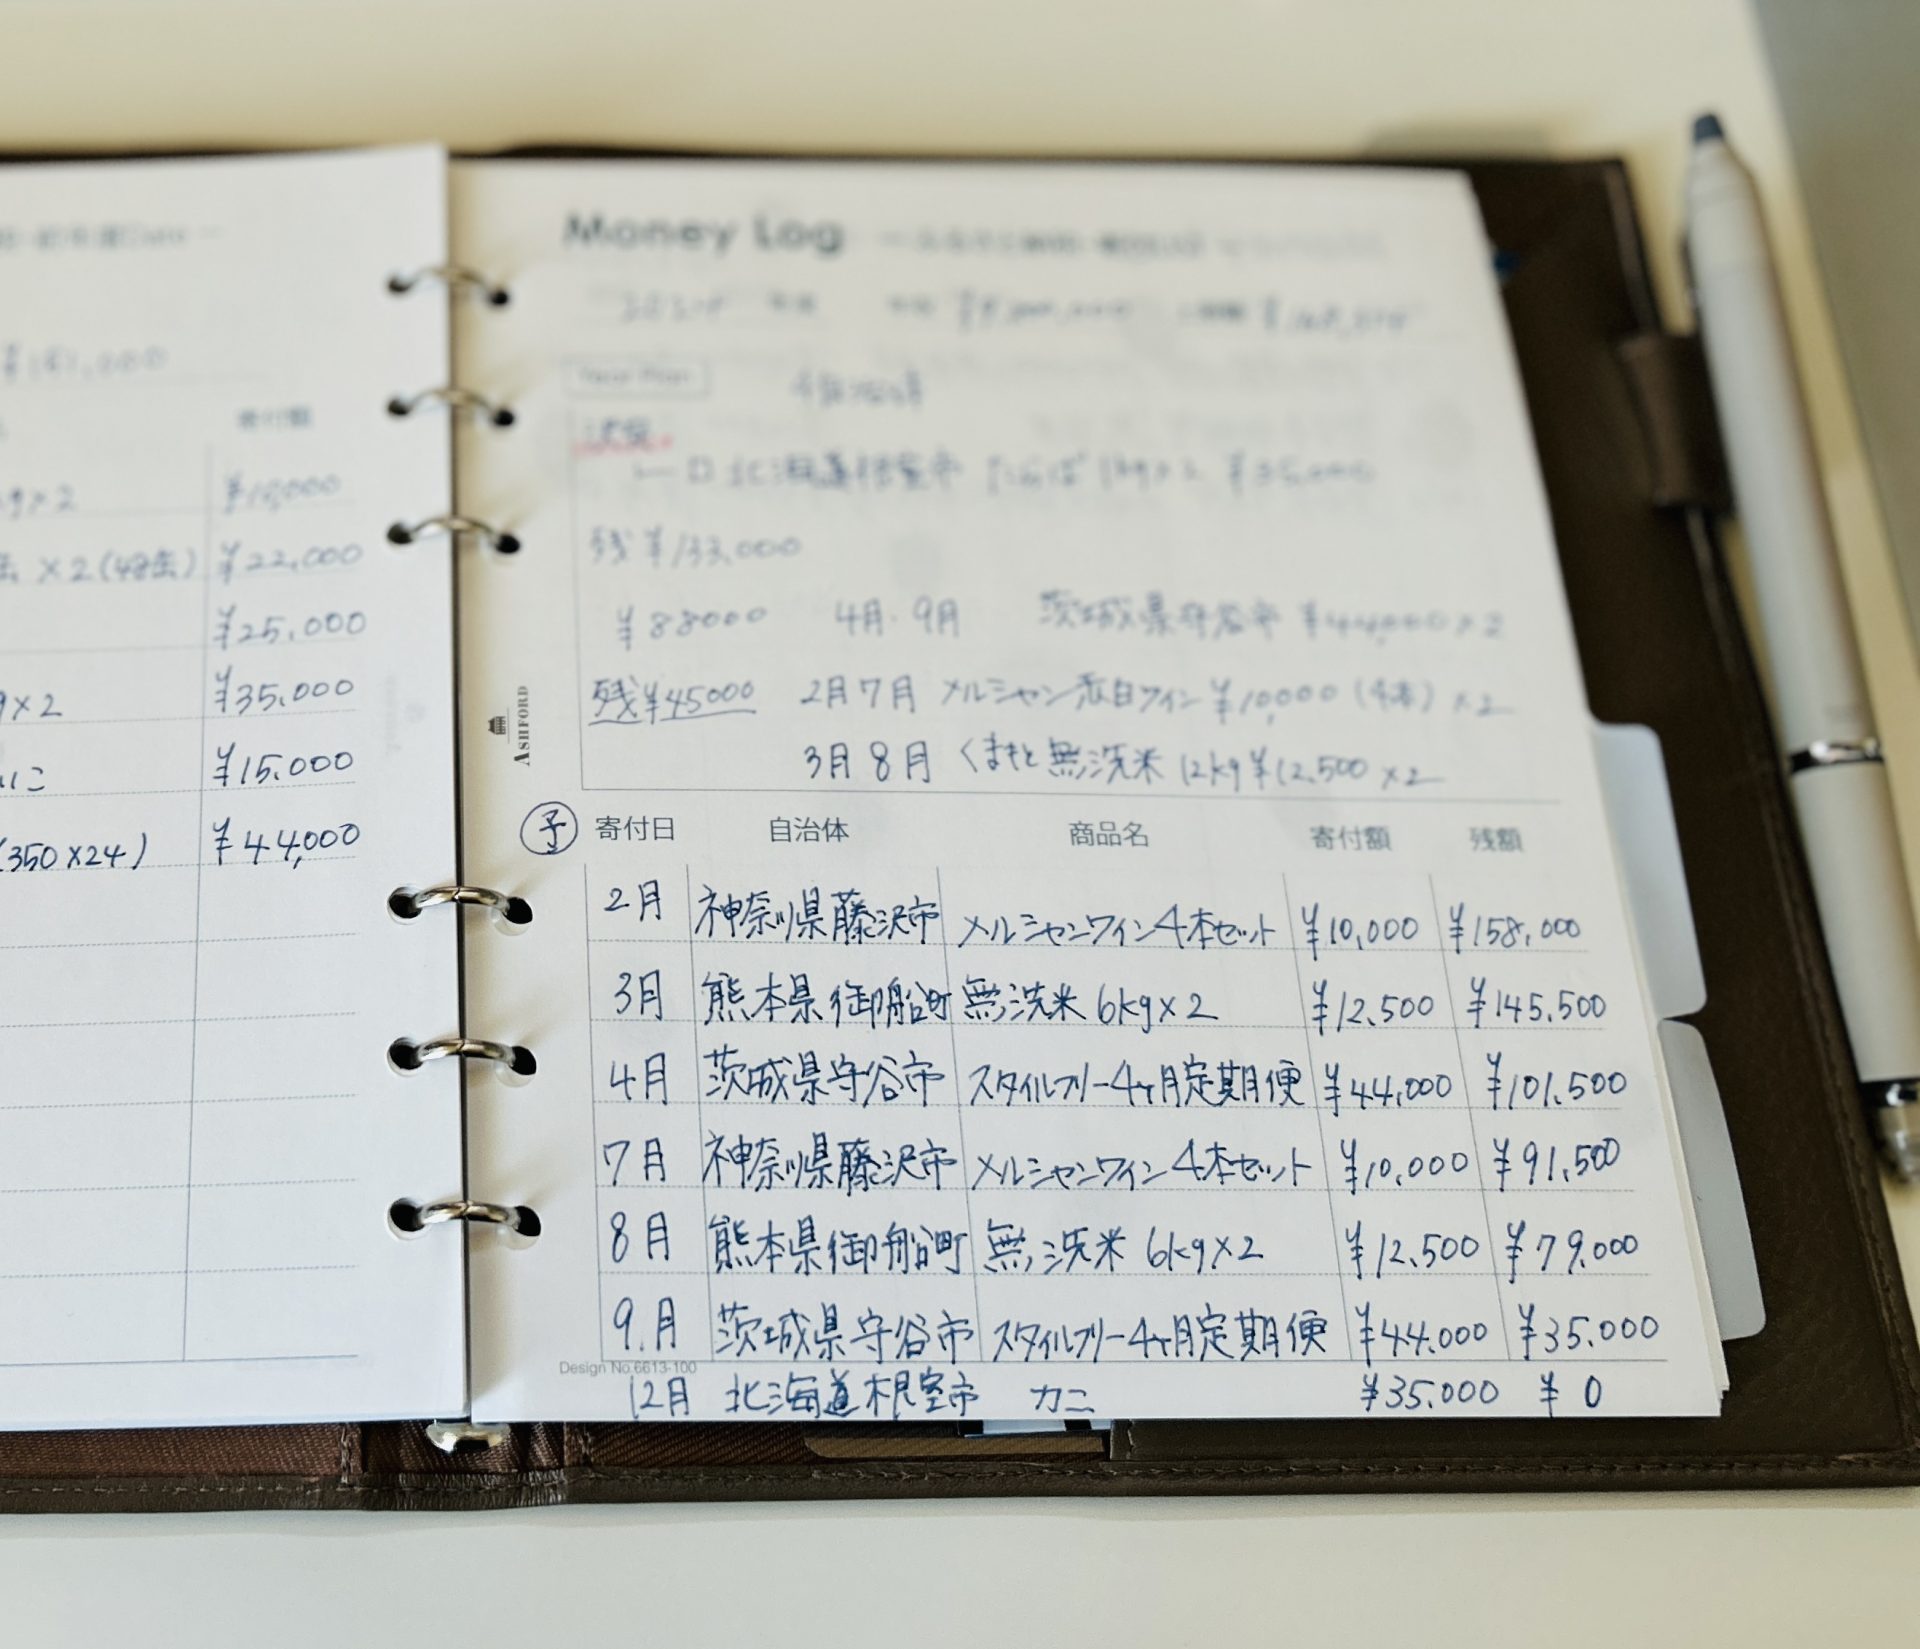 ¥151,000
寄付額
×2 ¥10,000
×2(48缶) ¥22,000
¥25,000
×2 ¥35,000
¥15,000
(350×24) ¥44,000
Money Log
Year Plan
北海道根室市 1kg×2 ¥35,000
残¥133,000
¥88000 4月・9月 茨城県守谷市 ¥44,000×2
残¥45000 2月7月 メルシャン赤白ワイン¥10,000(4本)×2
3月8月 くまもと無洗米12kg¥12,500×2
ASHFORD
予 寄付日 自治体 商品名 寄付額 残額
2月 神奈川県藤沢市 メルシャンワイン4本セット ¥10,000 ¥158,000
3月 熊本県御船町 無洗米6kg×2 ¥12,500 ¥145,500
4月 茨城県守谷市 スタイルフリー4ヶ月定期便 ¥44,000 ¥101,500
7月 神奈川県藤沢市 メルシャンワイン4本セット ¥10,000 ¥91,500
8月 熊本県御船町 無洗米6kg×2 ¥12,500 ¥79,000
9月 茨城県守谷市 スタイルフリー4ヶ月定期便 ¥44,000 ¥35,000
Design No.6613-100
12月 北海道根室市 カニ ¥35,000 ¥0